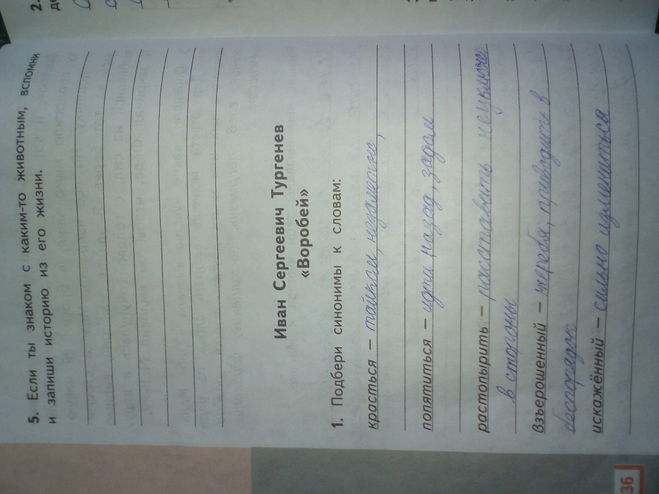 5. Если ты знаком с каким-то животным, вспомни
и запиши историю из его жизни.
Иван Сергеевич Тургенев
«Воробей»
1. Подбери синонимы к словам:
красться – тайком, незаметно,
попятиться – идти назад, задом
растопырить – расставить неуклюже
в стороны
Взъерошенный – теребя, приводить в
беспорядок
искажённый – сильно измениться
36
2.